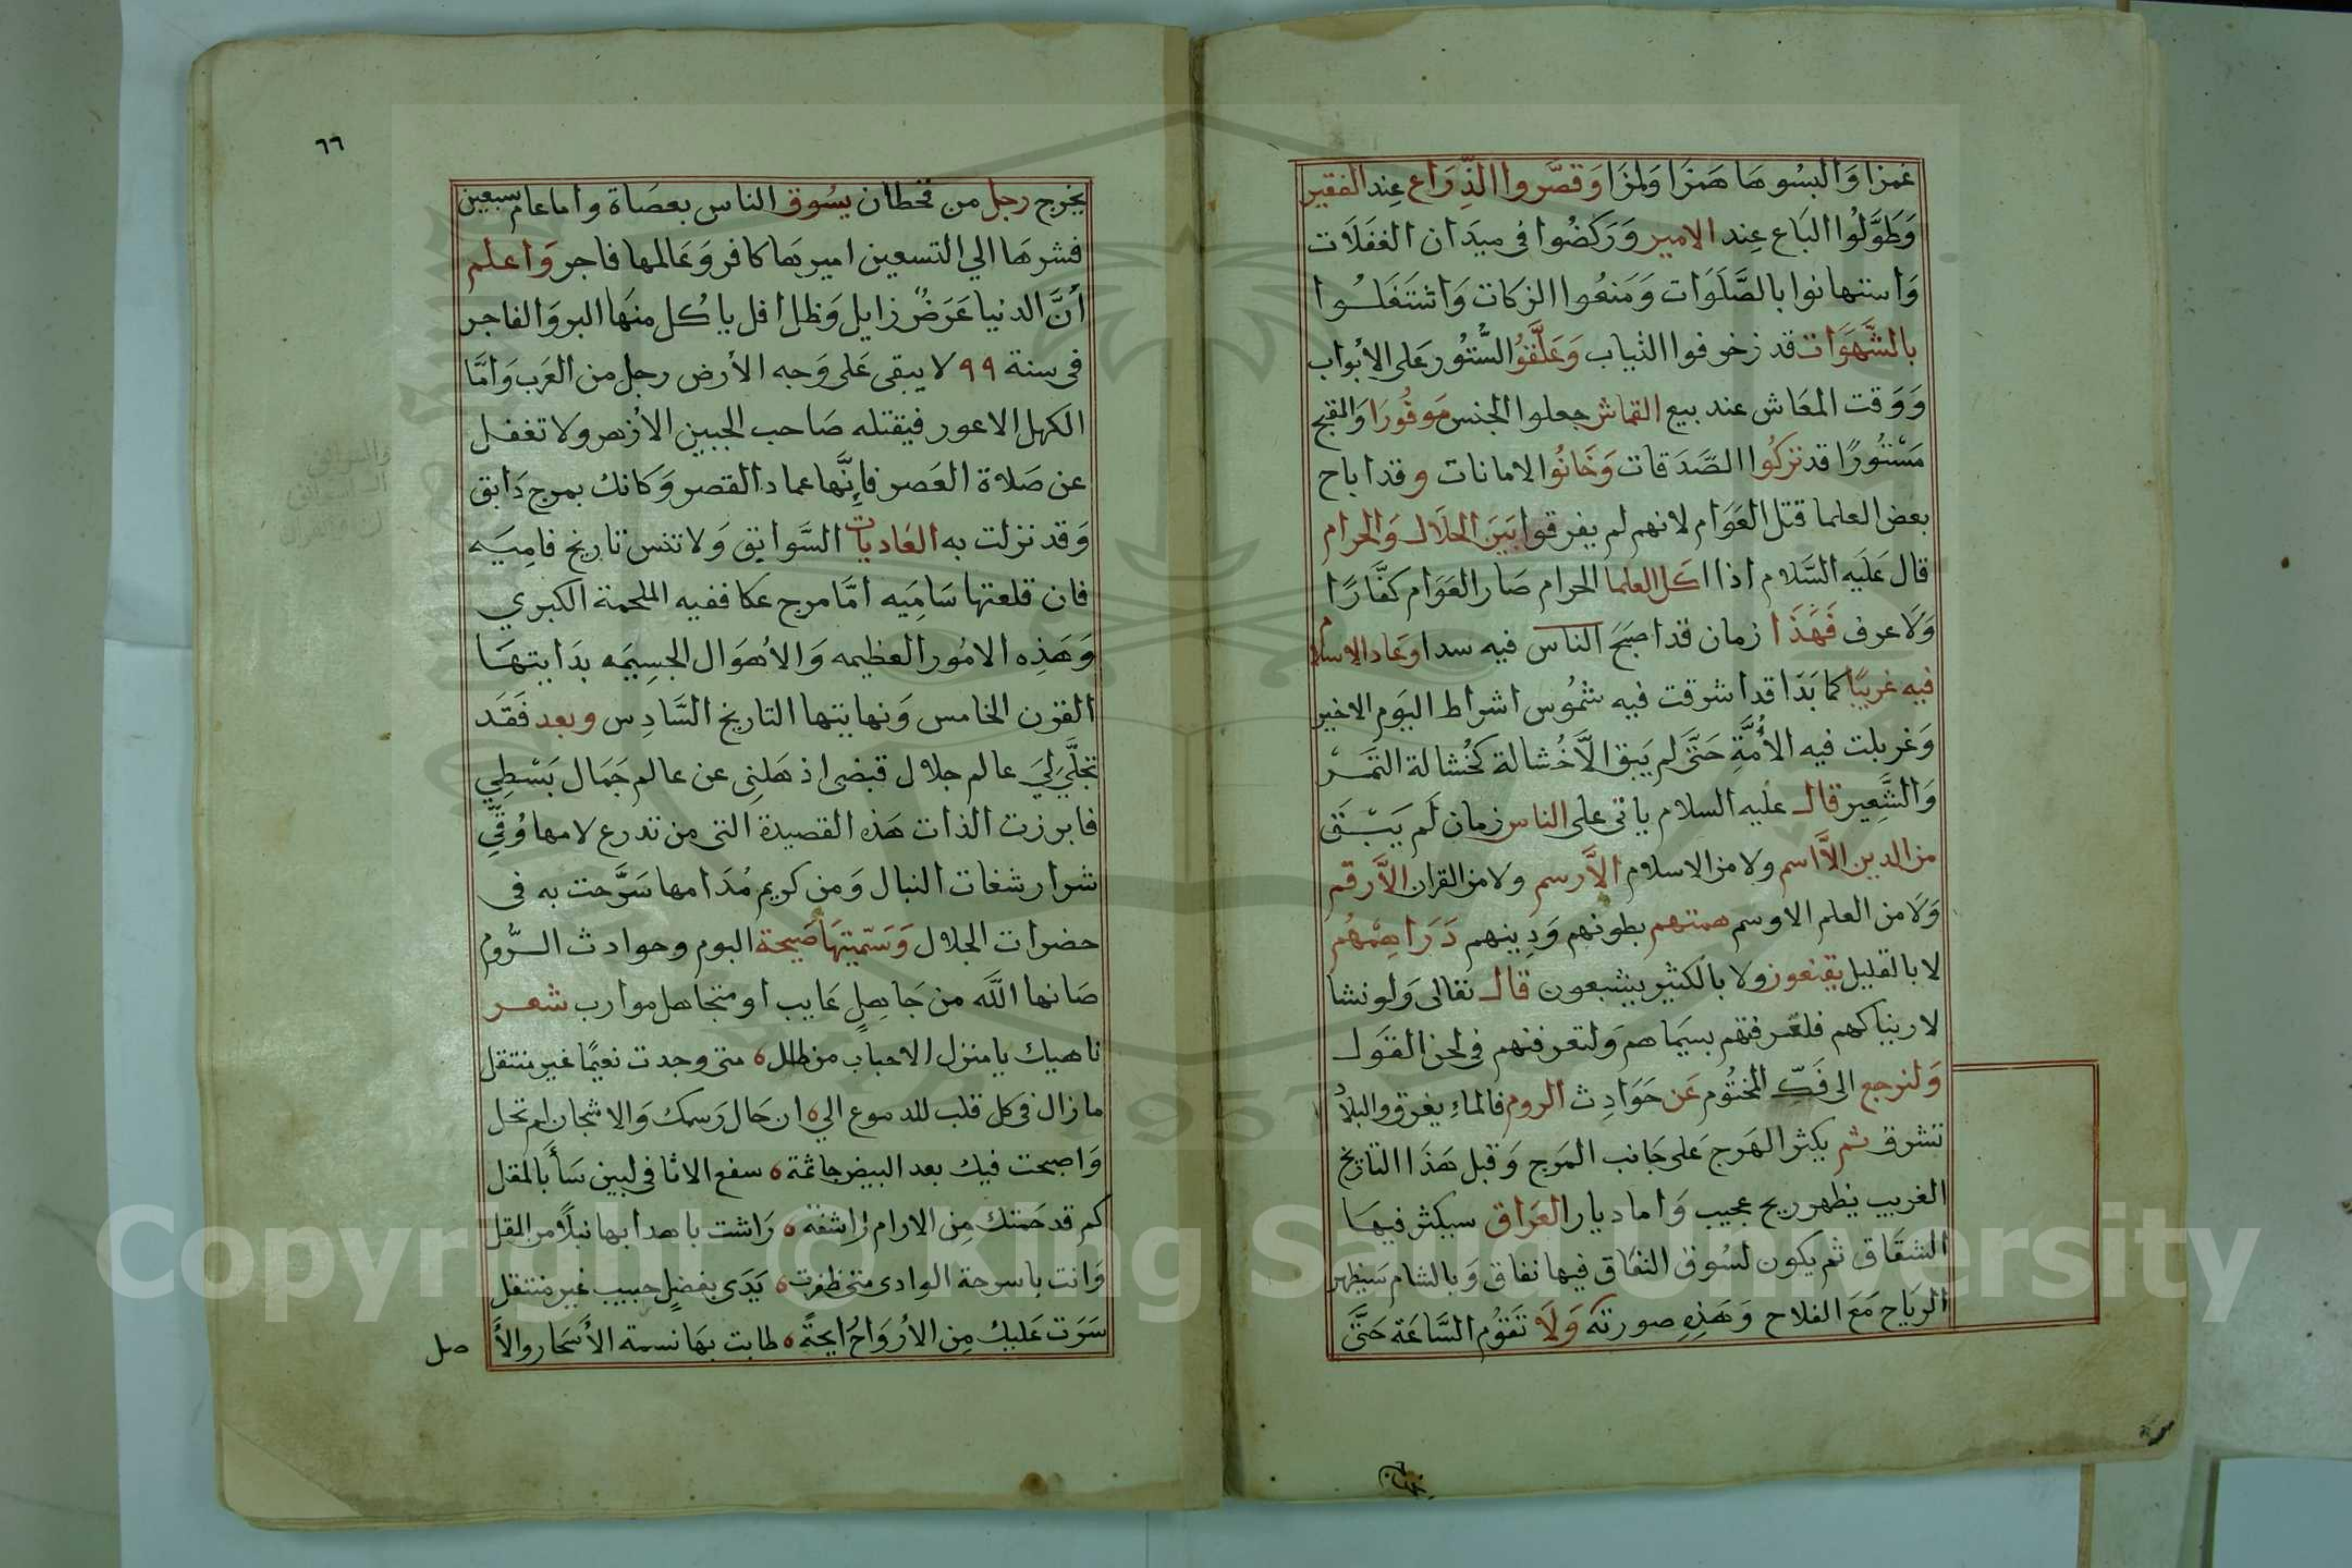 غمزا وَالبسُوهَا هَمزَا وَلمزَا وَقصَّروا الذِّرَاع عِند الفقير
وَطَوَّلُوا البَاع عِند الامير وَرَكضُوا فى ميدَان الغفَلَات
وَاستهانوا بالصَّلَوَات وَمَنعُوا الزكات وَاشتَغَلُوا
بالشَّهَوَات قد زخرفوا الثياب وَعَلَّقوُا السُّتُور عَلى الابْواب
وَوَقت المعَاش عند بيع القماش جعلوا الجنس مَوفُورَا وَالقبح
مَسْتُورًا قد تركُوا الصَّدَقات وَخَانُوا الامانات وقد اباح
بعض العلما قتل العَوَام لانهم لم يفرقوا بَينَ الحلَال وَالحرام
قال عَلَيه السَّلام اذا اكَل العلما الحرام صَار العَوَام كفَّارًا
وَلَا عرف فَهَذَا زمان قد اصبَحَ الناس فيه سدا وعَاد الاسلام
فيه غريبًا كما بَدَا قد اشرقت فيه شمُوس اشراط اليَوم الاخير
وَغربلت فيه الأُمَّةِ حَتَّى لم يَبق الَّا خُشالة كخُشالة التَمر
وَالشَّعِير قال عليه السلام ياتى على الناس زمان لَم يَبْقَ
من الدين الَّا اسم ولا من الاسلام الَّا رسم ولا من القران الَّا رقم
وَلَا من العلم الا وسم همتهم بطونهم وَدِينهم دَرَاهِمُهُم
لا بالقليل يقنعون ولا بالكثير يشبعون قال تعالى وَلو نشا
لاريناكهم فلعَرفتهم بسيَماهم وَلتعرفنهم فى لحن القول
وَلنرجع الى فَكِّ المختُوم عَن حَوَادِث الروم فالماءِ يغرق والبلاد
تشرق ثم يكثر الهَرج عَلى جَانب المَرج وَقبل هَذَا التاريخ
الغريب يظهر ريح عجيب وَاما ديار العَراق سيكثر فيهَا
الشقَاق ثم يكون لسُوق النفَاق فيها نفاق وَبالشام سَيظهر
الريَاح مَعَ الفلاح وَهَذِهِ صورته وَلَا تَقوُم السَّاعَة حَتَّى
٦٦
يخرج رجل من قحطان يسُوق الناس بعصَاة واما عام سبعين
فشرهَا الي التسعين اميرهَا كافر وَعَالمها فاجر وَاعلم
أنَّ الدنيا عَرَضٌ زايل وَظل افل ياكُل منهَا البر وَالفاجر
فى سنة ٩٩ لا يبقى عَلى وَجه الأرض رجل من العَرب وَامَّا
الكهل الاعور فيقتله صَاحب الجبين الأزهر ولا تغفل
عن صَلاة العَصر فاِنَّها عماد القصر وَكانك بمرج دَابق
وَقد نزلت به العَاديات السَّوابق وَلا تنس تاريخ فامِيَه
فان قلعتها سَامِيَه امَّا مرج عكا ففيه الملحمة الكبري
وَهَذِه الامُور العظيمه وَالاهوَال الجسِيَمَه بدَايتهَا
القرن الخامس وَنهايتها التاريخ السَّادِس وبعد فَقَد
تجلَّي لِيَ عالم جلال قبضى اذهَلنِى عن عالم جَمَال بَسْطِي
فابرزت الذات هَذه القصيدة التى من تدرع لامها وُقِّي
شرار شغات النبال وَمن كريم مُدَامها سَرَّحت به فى
حضرات الجلال وَسَمّيتهَا صَيحة البوم وحوادث الرُّوم
صَانها اللَّه من جَاهِلٍ عَايب او متجاهل موارب شعر
ناهيك يا منزل الاحباب من طلل ٥ متى وجدت نعيمًا غير منتقل
ما زال فى كل قلب للدموع الي ٥ ان حَال رَسمك وَالاشجان لم تحل
وَاصبحت فيك بعد البيض جاثمة ٥ سفع الاثافى لبين سَأَبالمقل
كم قد حَمتك مِن الارام راشفة ٥ رَاشت باهدابها نبلًا من المقل
وَانت يا سرحة الوادى متى ظفرت ٥ يَدَى بفضلٍ حبيب غير منتقل
سَرَت عَليك مِن الأروَاحُ ايحةً ٥ طابت بهَا نسمة الأسَحار والأَ
صل